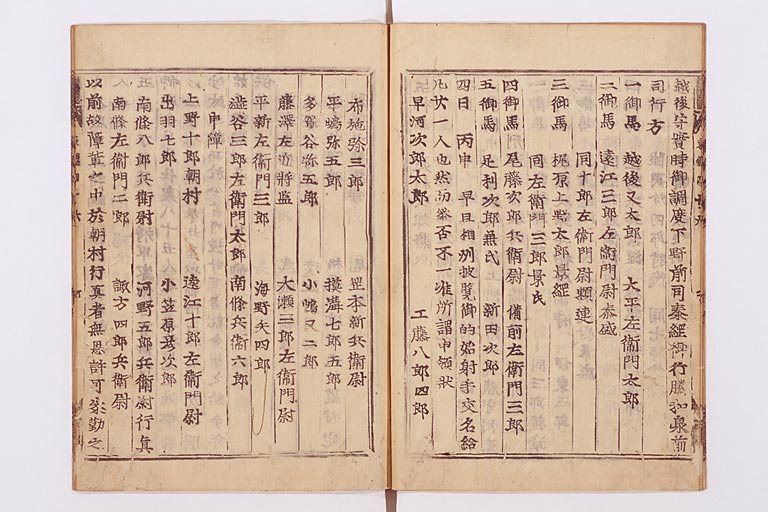 越後守實時御調度下野前司秦經御行騰和泉前
司行方
一御馬 越後又太郎 大平左衞門太郎
二御馬 遠江三郎左衞門尉泰盛
同十郎左衞門尉頼連
三御馬 梶原上野太郎景經
同左衞門三郎景氏
四御馬 尾藤次郎兵衞尉 備前左衞門三郎
五御馬 足利次郎兼氏 新田次郎
四日 丙申 早旦相州披覽御的始射手交名給
凡廿一人也然而參否不一准所謂申領状
早河次郎太郎 工藤八郎四郎
布施弥三郎 罡本新兵衞尉
平嶋弥五郎 横溝七郎五郎
多賀谷弥五郎 小嶋又二郎
藤澤左近將監 大瀬三郎左衞門尉
平新左衞門三郎 海野矢四郎
澁谷三郎左衞門太郎 南條兵衞六郎
申障
上野十郎朝村 遠江十郎左衞門尉
出羽七郎 小笠原弥次郎
南條八郎兵衞尉 河野五郎兵衞尉行真
南條左衞門二郎 諏方四郎兵衞尉
以前故障輩之中於朝村行真者無恩許可參勤之